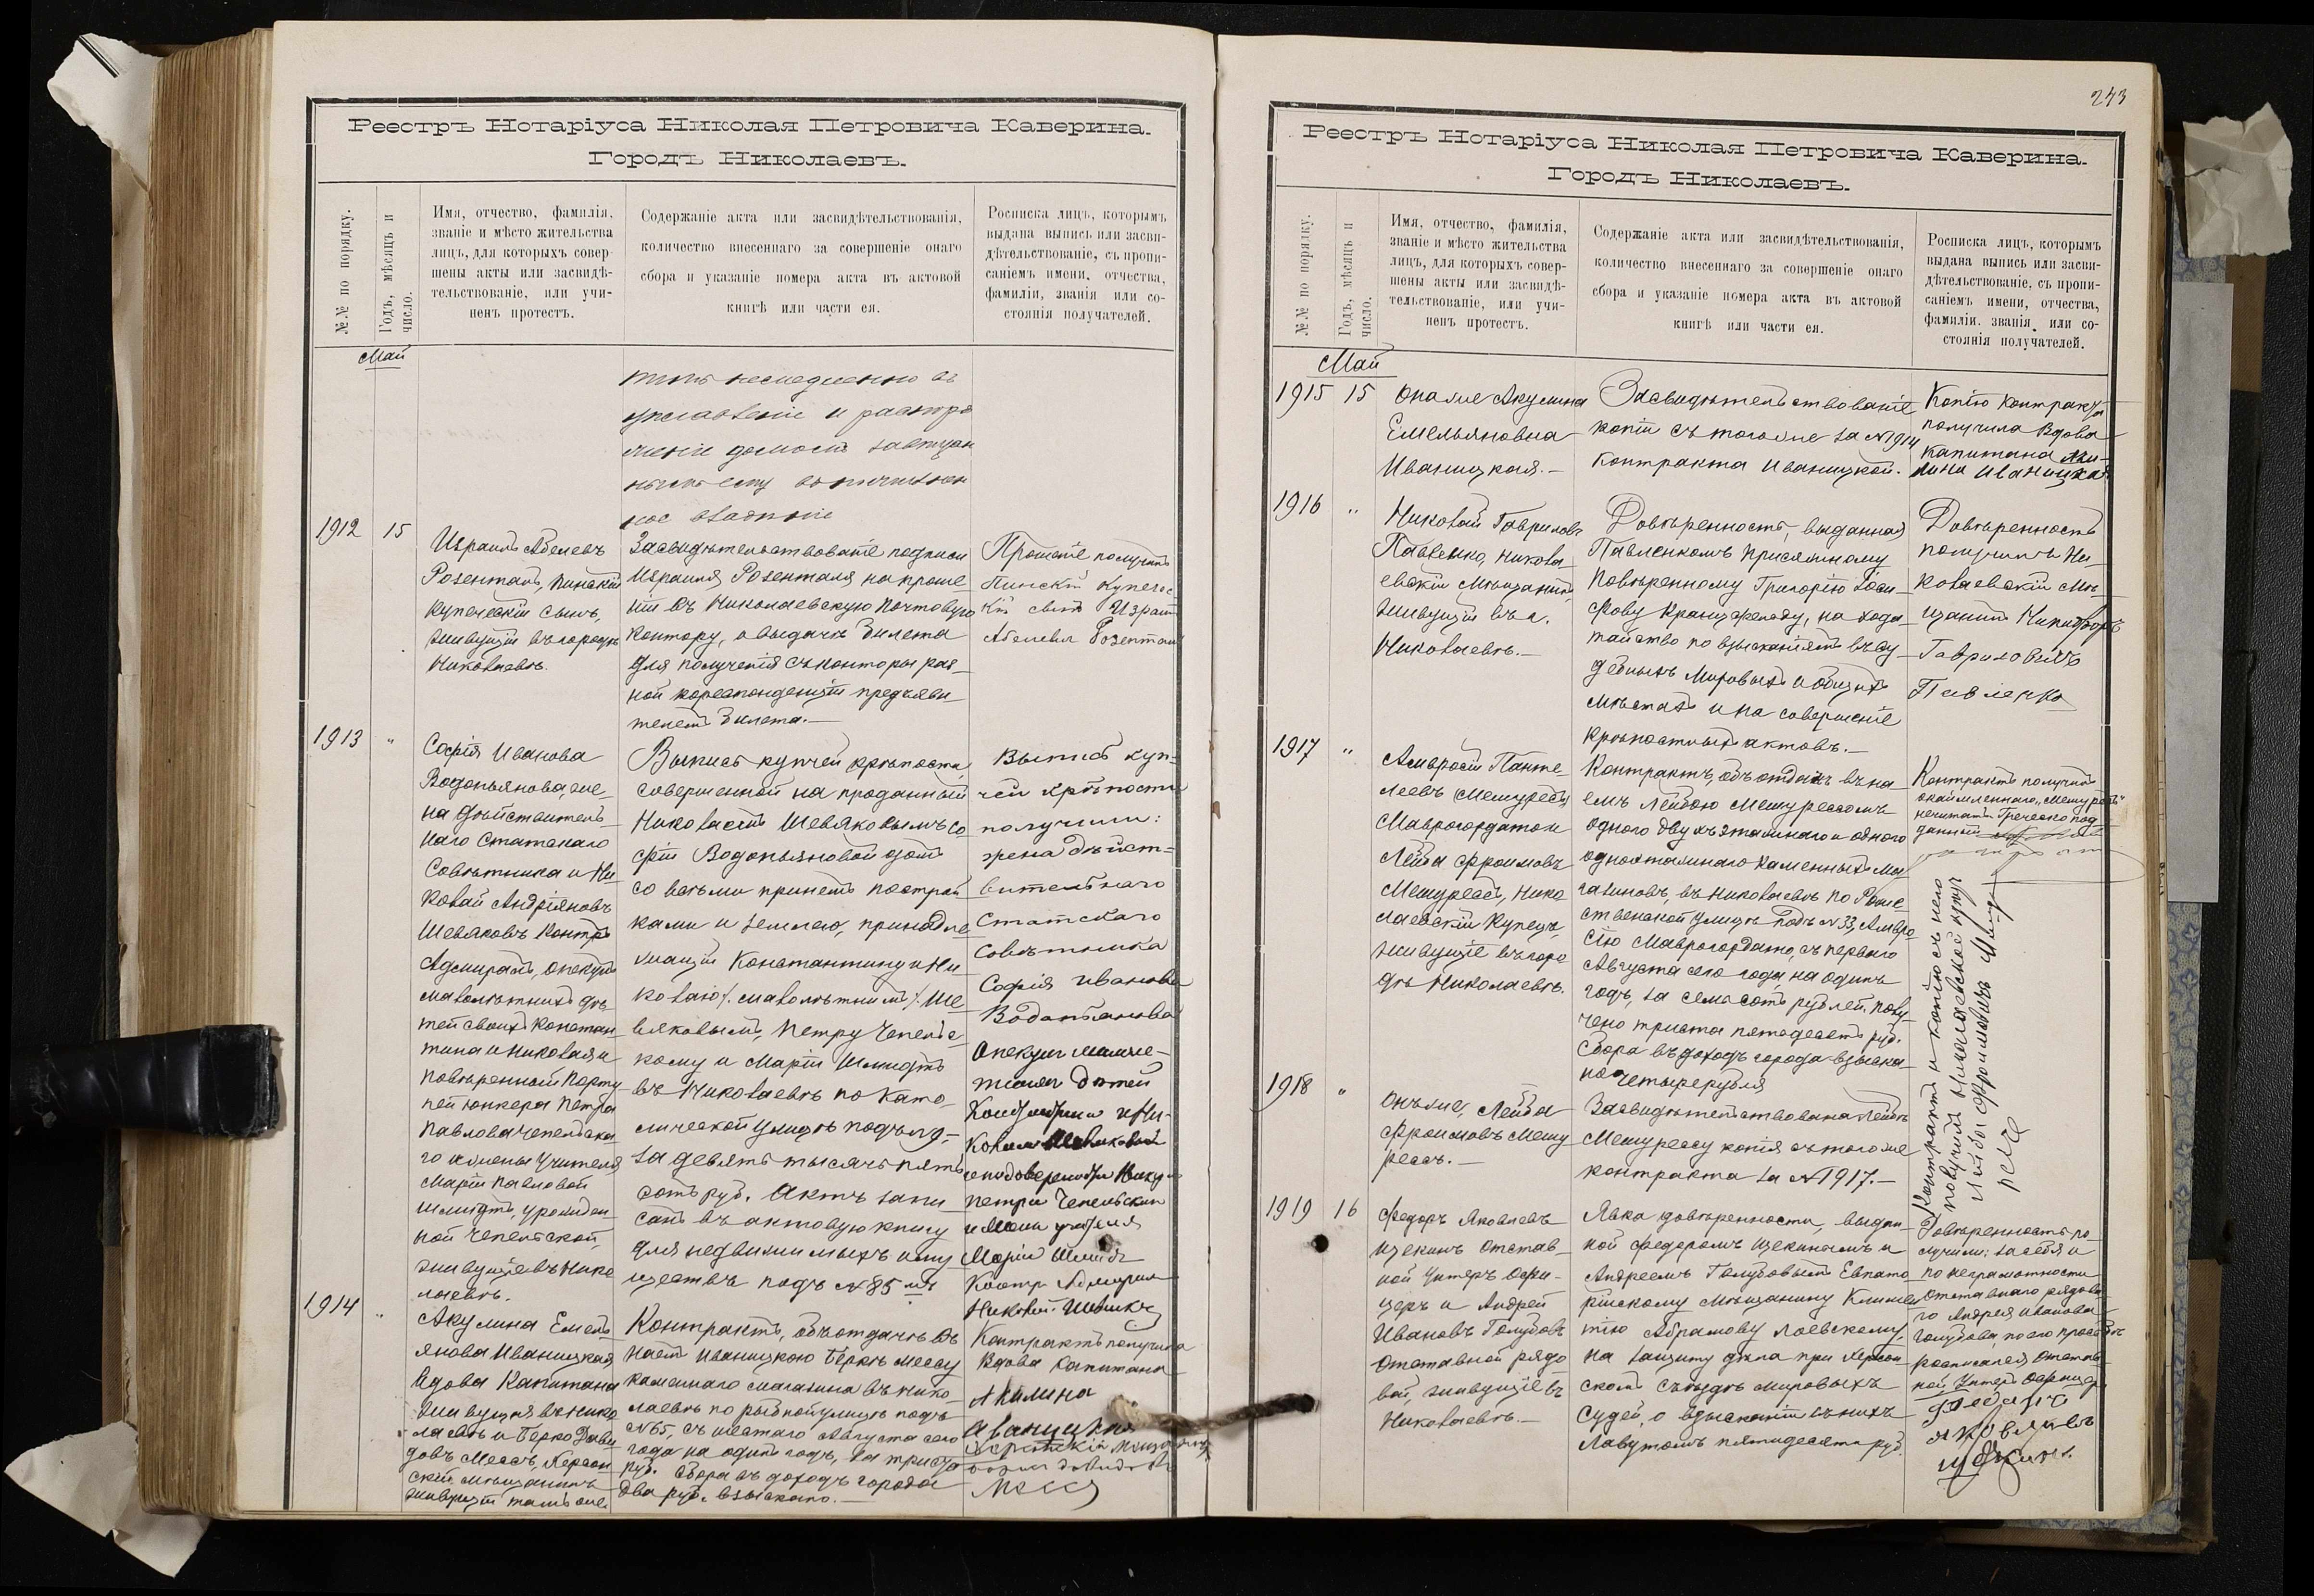 Реестръ Нотаріуса Николая Петровича Каверина.
Городъ Николаевъ.
№№ по порядку.
Годъ, мѣсяцъ и
число.
Имя, отчество, фамилія,
званіе и мѣсто жительства
лицъ, для которыхъ совер-
шены акты или засвидѣ-
тельствованіе, или учи-
ненъ протестъ.
Содержаніе акта или засвидѣтельствованія,
количество внесеннаго за совершеніе онаго
сбора и указаніе номера акта въ актовой
книгѣ или части ея.
Росписка лицъ, которымъ
выдана выпись или засви-
дѣтельствованіе, съ пропи-
саніемъ имени, отчества,
фамиліи, званія или со-
стоянія получателей.
Май
управленіе и распоря
1912
15
Израиль Абелевъ
Розенталь, Пинскій
купеческій сынъ,
живущій въ городѣ
Николаевѣ.
Засвидѣтельствованіе подписи
Израиля Розенталя на проше
ніи въ Николаевскую Почтовую
Контору, о выдачѣ билета
для полученія съ конторы раз-
ной кореспонденціи предъяви
телемъ билета.—
Прошеніе получилъ
Пинскій купечес-
кій сынъ Израиль
Абелевъ Розенталь
1913
"
Софія Иванова
Водопьянова, же-
на дѣйствитель-
наго Статскаго
Совѣтника и Ни
колай Андріяновъ
Шевяковъ Контръ
Адмиралъ, опекунъ
малолѣтнихъ дѣ
тей своихъ Констан
тина и Николая и
повѣренный Порту
пей юнкера Петра
Павлова Чепельска
го и жены Учителя
Маріи Павловой
Шмидтъ, урожден-
ной Чепельской,
живущіе въ Нико
лаевѣ.
Выпись купчей крѣпости
совершенной на проданный
Николаемъ Шевяковымъ Со
фіи Водопьяновой домъ
со всѣми при немъ построй
ками и землею, принадле
жащій Константину и Ни
колаю /. малолѣтнимъ ./ Ше
вяковымъ, Петру Чепельс-
кому и Маріи Шмидтъ
въ Николаевѣ по Като-
лической улицѣ подъ № 9,-
за девять тысячъ пять
сотъ руб. Актъ запи
санъ въ актовую книгу
для недвижимыхъ иму
ществъ подъ № 85 мъ
Выпись куп-
чей крѣпости
получили:
жена дѣйст-
вительнаго
Статскаго
Совѣтника
Софія Иванова
Водопьянова
Опекунъ малолѣ-
тнихъ дѣтей
Константина и Ни-
колая Шевяковыхъ
Петра Чепельскаго
и жены учителя
Маріи Шмидтъ
Контр Адмирал
Николай Шевяковъ
1914
"
Акулина Емель
янова Иваницкая
вдова Капитана
живущая въ Нико
лаевѣ и Берко Дави
довъ Меесъ, Херсон
скій мѣщанинъ
живущій тамъ же.
Контрактъ, объ отдачѣ въ
наемъ Иваницкою Беркѣ Меесу
каменнаго магазина въ Нико-
лаевѣ по рыбной улицѣ подъ
№65, съ шестаго Августа сего
года на одинъ годъ, за триста
руб. Сбора въ доходъ города
два руб. взыскано.—
Контрактъ получила
Вдова Капитана
Акилина
Иваницкая
Херсонскій мѣщанинъ
Меес
243
Реестръ Нотаріуса Николая Петровича Каверина.
Городъ Николаевъ.
№№ по порядку.
Годъ, мѣсяцъ и
число.
Имя, отчество, фамилія,
званіе и мѣсто жительства
лицъ, для которыхъ совер-
шены акты или засвидѣ-
тельствованіе, или учи-
ненъ протестъ.
Содержаніе акта или засвидѣтельствованія,
количество внесеннаго за совершеніе онаго
сбора и указаніе номера акта въ актовой
книгѣ или части ея.
Росписка лицъ, которымъ
выдана выпись или засви-
дѣтельствованіе, съ пропи-
саніемъ имени, отчества,
фамиліи, званія или со-
стоянія получателей.
Май
1915
15
Она же Акулина
Емельяновна
Иваницкая.—
Засвидѣтельствованіе
копіи съ того же за №1914
контракта Иваницкой.
Копію контракта
получила Вдова
Капитана Аки-
лина Иваницкая
1916
"
Николай Гавриловъ
Павленко, Никола
евскій Мѣщанинъ
живущій въ г.
Николаевѣ.—
Довѣренность, выданная
Павленкомъ Присяжному
Повѣренному Григорію Іоси
фову Кранцфельду, на хода
тайство по взысканіямъ въ су
дебныхъ Мировыхъ и общихъ
мѣстахъ и на совершеніе
крѣпостныхъ актовъ.—
Довѣренность
получилъ Ни-
колаевскій Мѣ-
щанинъ
Гавриловичъ
Павленко
1917
"
Амвросій Панте
леевъ
Маврогордато и
Лейба Фроимовъ
Мешуресъ, Нико
лаевскій Купецъ,
живущіе въ горо
дѣ Николаевѣ.
Контрактъ, объ отдачѣ въ на
емъ Лейбою Мешурессомъ
одного двухъэтажнаго и одного
одноэтажнаго каменныхъ ма
газиновъ, въ Николаевѣ по Роже
ственской улицѣ подъ №33, Амвро
сію Маврогордато, съ перваго
Августа сего года, на одинъ
годъ, за семь сотъ рублей, полу-
чено триста пятьдесятъ руб.
Сбора въ доходъ города взыска-
но четыре рубля
Контрактъ получилъ
нечитать Греческо под
данный
Контрактъ и копію съ него
получилъ Николаевскій купецъ
Лейба Фроимовичъ Мешу
ресъ
1918
"
Онъ же, Лейба
Фроимовъ Мешу
рессъ.—
Засвидѣтельствована Лейбѣ
Мешурессу копія съ того же
контракта за №1917.—
1919
16
Федоръ Яковлевъ
Щекинъ отстав-
ной унтеръ офи-
церъ и Андрей
Ивановъ Голубовъ
отставной рядо
вой, живущіе въ
Николаевѣ.—
Явка довѣренности, выдан-
ной Федоромъ Щекинымъ и
Андреемъ Голубовымъ Евпато
рійскому мѣщанину Климен
тію Абрамову Лаевскому,
на защиту дѣла при Херсон-
скомъ съѣздѣ мировыхъ
Судей, о взысканіи съ нихъ
пятидесяти руб.
Довѣренность по-
лучили: за себя и
по неграмотности
отставнаго рядова-
го Андрея Иванова
Голубова, по его просьбѣ
росписался отстав-
ной Унтеръ Офицеръ
Федоръ
Яковлевъ
Щекинъ.